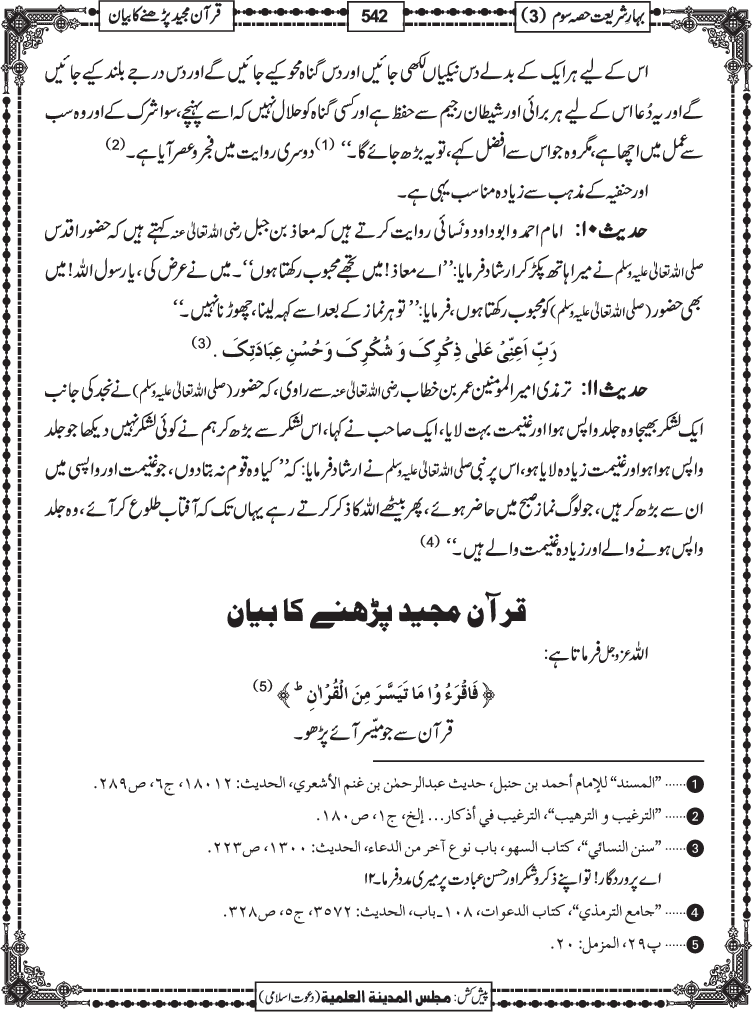 بہارِ شریعت حصہ سوم (3)
542
قرآن مجید پڑھنے کا بیان
اس کے لیے ہر ایک کے بدلے دس نیکیاں لکھی جائیں اور دس گناہ محو کیے جائیں گے اور دس درجے بلند کیے جائیں
گے اور یہ دُعا اس کے لیے ہر برائی اور شیطان رجیم سے حفظ ہے اور کسی گناہ کو حلال نہیں کہ اسے پہنچے، سوا شرک کے اور وہ سب
سے عمل میں اچھا ہے، مگر وہ جو اس سے افضل کہے، تو یہ بڑھ جائے گا۔‘‘ (1) دوسری روایت میں فجر و عصر آیا ہے۔ (2)
اور حنفیہ کے مذہب سے زیادہ مناسب یہی ہے۔
حدیث ۱۰: امام احمد و ابو داود و نَسائی روایت کرتے ہیں کہ معاذ بن جبل رضی اللہ تعالیٰ عنہ کہتے ہیں کہ حضور اقدس
صلی اللہ تعالیٰ علیہ وسلم نے میرا ہاتھ پکڑ کر ارشاد فرمایا: ’’اے معاذ! میں تجھے محبوب رکھتا ہوں‘‘۔ میں نے عرض کی، یا رسول اللہ! میں
بھی حضور (صلی اللہ تعالیٰ علیہ وسلم) کو محبوب رکھتا ہوں، فرمایا: ’’تو ہر نماز کے بعد اسے کہہ لینا، چھوڑنا نہیں۔‘‘
رَبِّ اَعِنِّیْ عَلٰی ذِکْرِکَ وَ شُکْرِکَ وَحُسْنِ عِبَادَتِکَ . (3)
حدیث ۱۱: ترمذی امیر المومنین عمر بن خطاب رضی اللہ تعالیٰ عنہ سے راوی، کہ حضور (صلی اللہ تعالیٰ علیہ وسلم) نے نجد کی جانب
ایک لشکر بھیجا وہ جلد واپس ہوا اور غنیمت بہت لایا، ایک صاحب نے کہا، اس لشکر سے بڑھ کر ہم نے کوئی لشکر نہیں دیکھا جو جلد
واپس ہوا ہو اور غنیمت زیادہ لایا ہو، اس پر نبی صلی اللہ تعالیٰ علیہ وسلم نے ارشاد فرمایا: کہ ’’کیا وہ قوم نہ بتا دوں، جو غنیمت اور واپسی میں
ان سے بڑھ کر ہیں، جو لوگ نماز صبح میں حاضر ہوئے، پھر بیٹھے اللہ کا ذکر کرتے رہے یہاں تک کہ آفتاب طلوع کر آئے، وہ جلد
واپس ہونے والے اور زیادہ غنیمت والے ہیں۔‘‘ (4)
قرآن مجید پڑھنے کا بیان
اللہ عزوجل فرماتا ہے:
﴿ فَاقْرَءُوْا مَا تَيَسَّرَ مِنَ الْقُرْاٰنِ ؕ ﴾ (5)
قرآن سے جو میّسر آئے پڑھو۔
1 ...... ”المسند“ للإمام أحمد بن حنبل، حديث عبدالرحمٰن بن غنم الأشعري، الحديث: ١٨٠١٢، ج٦، ص٢٨٩.
2 ...... ”الترغيب و الترهيب“، الترغيب في أذكار... إلخ، ج١، ص١٨٠.
3 ...... ”سنن النسائي“، كتاب السهو، باب نوع آخر من الدعاء، الحديث: ١٣٠٠، ص٢٢٣.
اے پروردگار! تو اپنے ذکر و شکر اور حسن عبادت پر میری مدد فرما۔ ۱۲
4 ...... ”جامع الترمذي“، كتاب الدعوات، ١٠٨-باب، الحديث: ٣٥٧٢، ج٥، ص٣٢٨.
5 ...... پ٢٩، المزمل: ٢٠.
پیش کش: مجلس المدینۃ العلمیۃ (دعوت اسلامی)